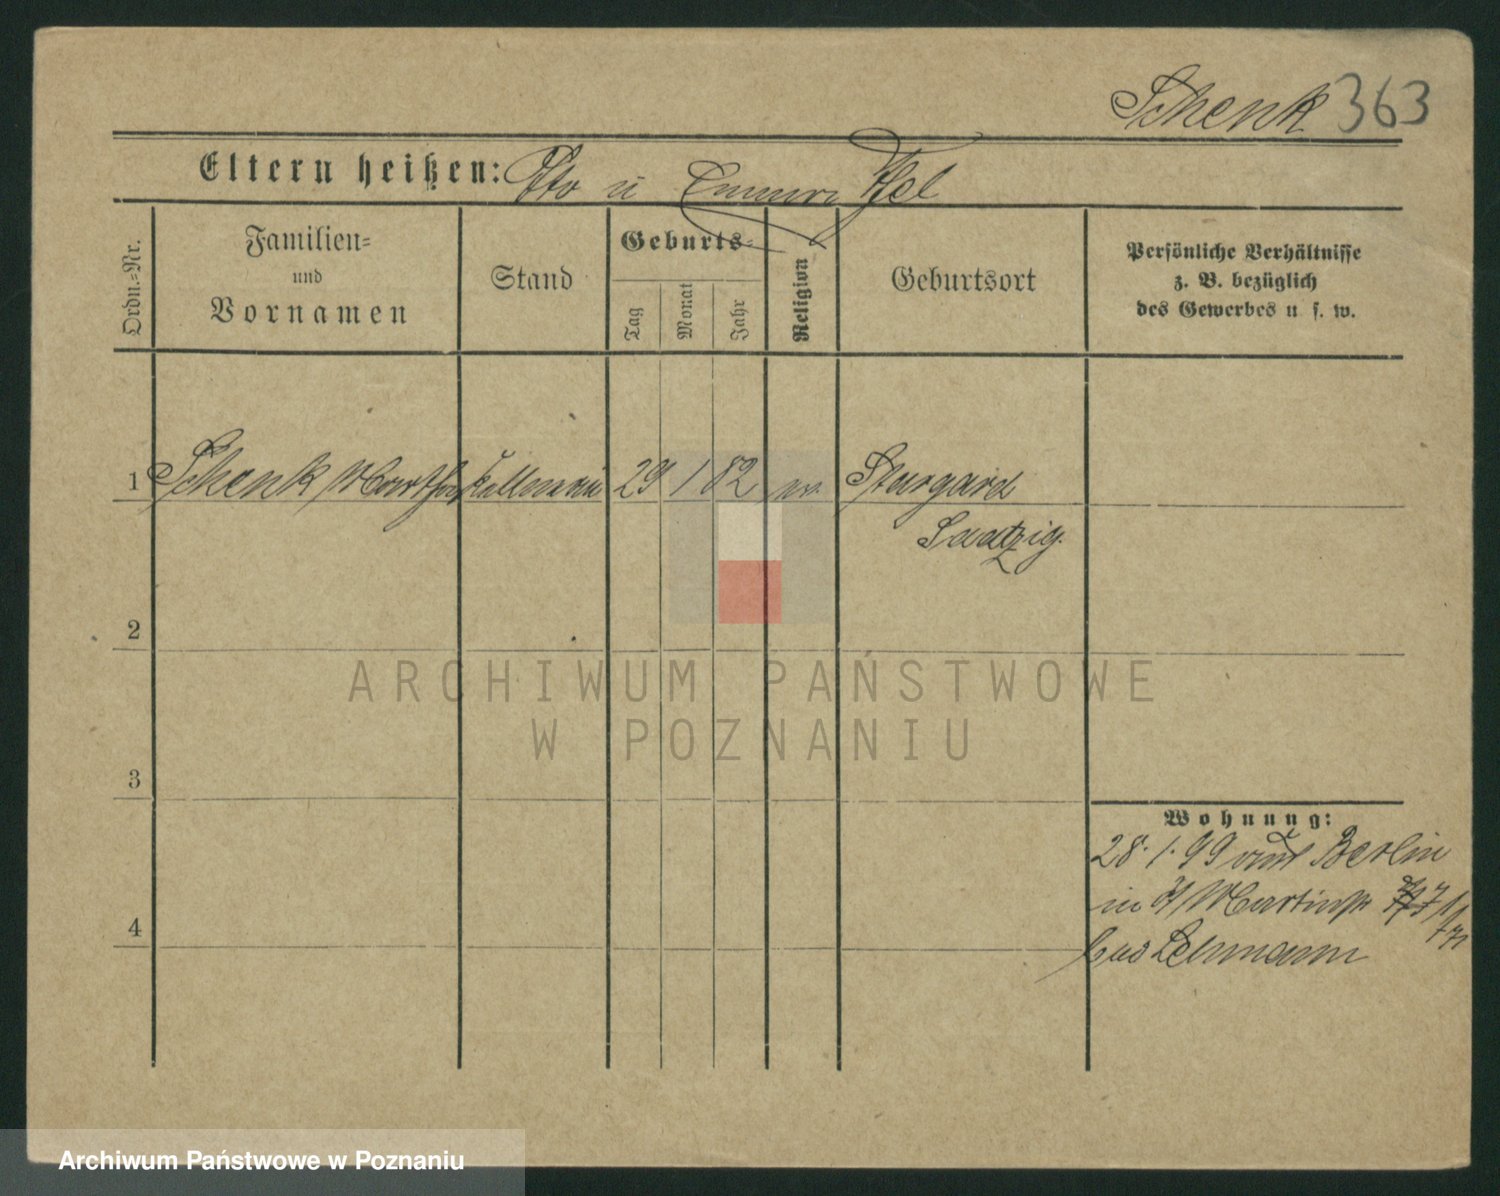 Schenk 363
Eltern heißen: Otto u
Ordn.-Nr.
Familien-
und
Vornamen
Stand
Geburts-
Tag
Monat
Jahr
Religion
Geburtsort
Persönliche Verhältnisse
z. B. bezüglich
des Gewerbes u s. w.
1 Schenk Martha Kellnerin 29 1 82 ev. Stargard
Saatzig.
2
3
4
Wohnung:
28. 1. 99 aus Berlin
in Martinstr
bei Lehmann
ARCHIWUM PAŃSTWOWE
W POZNANIU
Archiwum Państwowe w Poznaniu